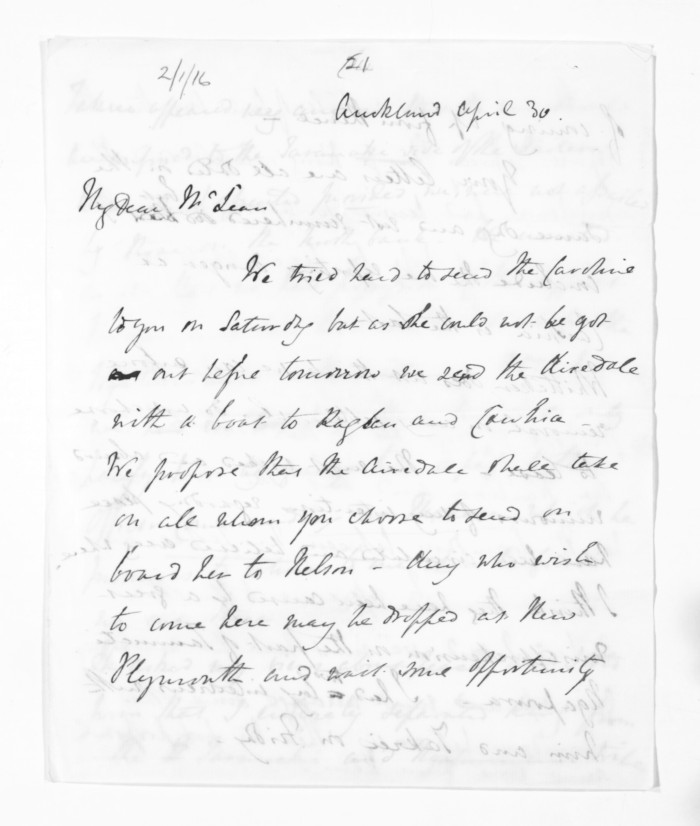 2/1/16
21
Auckland April 30.
My Dear McLean
We tried hard to send the Caroline
to you on Saturday but as she could not be got
out before tomorrow we send the Airedale
with a boat to Raglan and Cawhia
We propose that the Airedale shall take
on all whom you choose to send on
board her to Nelson – Any who wish
to come here may be dropped at New
Plymouth and wait some opportunity